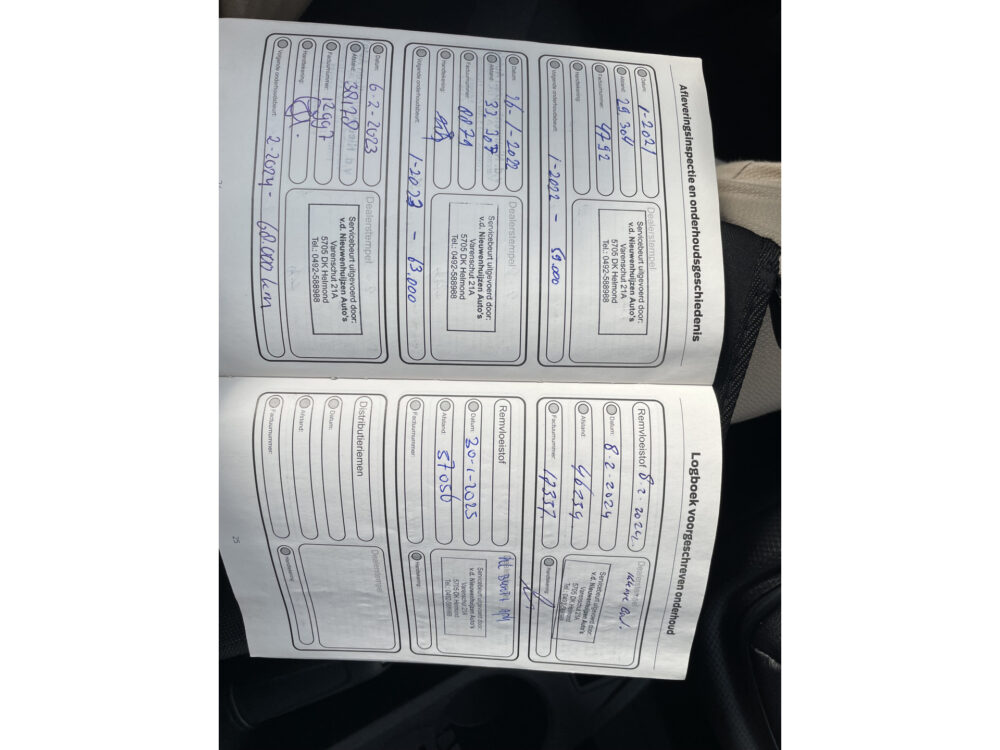 Afleveringsinspectie en onderhoudsgeschiedenis
Datum: 1-2021
Afstand: 29.304
Factuurnummer: 4792
Handtekening:
Volgende onderhoudsbeurt: 1-2022 - 59.000
Dealerstempel
Servicebeurt uitgevoerd door:
v.d. Nieuwenhuijzen Auto's
Varenschut 21A
5705 DK Helmond
Tel.: 0492-588988
Datum: 16-1-2022
Afstand: 33.307
Factuurnummer: 8879
Handtekening:
Volgende onderhoudsbeurt: 1-2023 - 63.000
Dealerstempel
Servicebeurt uitgevoerd door:
v.d. Nieuwenhuijzen Auto's
Varenschut 21A
5705 DK Helmond
Tel.: 0492-588988
Datum: 6-2-2023
Afstand: 38178
Factuurnummer: 12997
Handtekening:
Volgende onderhoudsbeurt: 2-2024 - 68.000 km
Dealerstempel
Servicebeurt uitgevoerd door:
v.d. Nieuwenhuijzen Auto's
Varenschut 21A
5705 DK Helmond
Tel.: 0492-588988
Logboek voorgeschreven onderhoud
Remvloeistof 8.2.2024
Datum: 8.2.2024
Afstand: 46254
Factuurnummer: 17357
Dealerstempel
Servicebeurt uitgevoerd door:
v.d. Nieuwenhuijzen Auto's
Varenschut 21A
5705 DK Helmond
Handtekening:
Remvloeistof
Datum: 20-1-2025
Afstand: 57056
Factuurnummer:
Servicebeurt uitgevoerd door:
v.d. Nieuwenhuijzen Auto's
Varenschut 21A
5705 DK Helmond
Tel.: 0492-588988
Handtekening:
Distributieriemen
Datum:
Afstand:
Factuurnummer:
Dealerstempel
Handtekening:
25